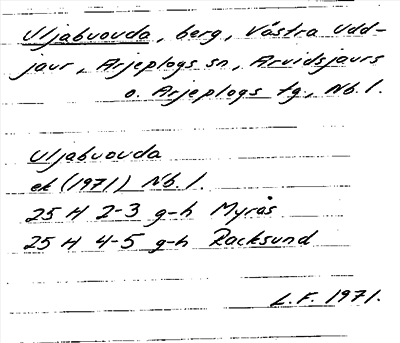 Uljabuouda, berg, Västra Udd-
jaur, Arjeplogs sn, Arvidsjaurs
o. Arjeplogs tg., Nb.l.
Uljabuouda
ek (1971) Nb.l.
25 H 2-3 g-h Myrås
25 H 4-5 g-h Racksund
L.F. 1971.